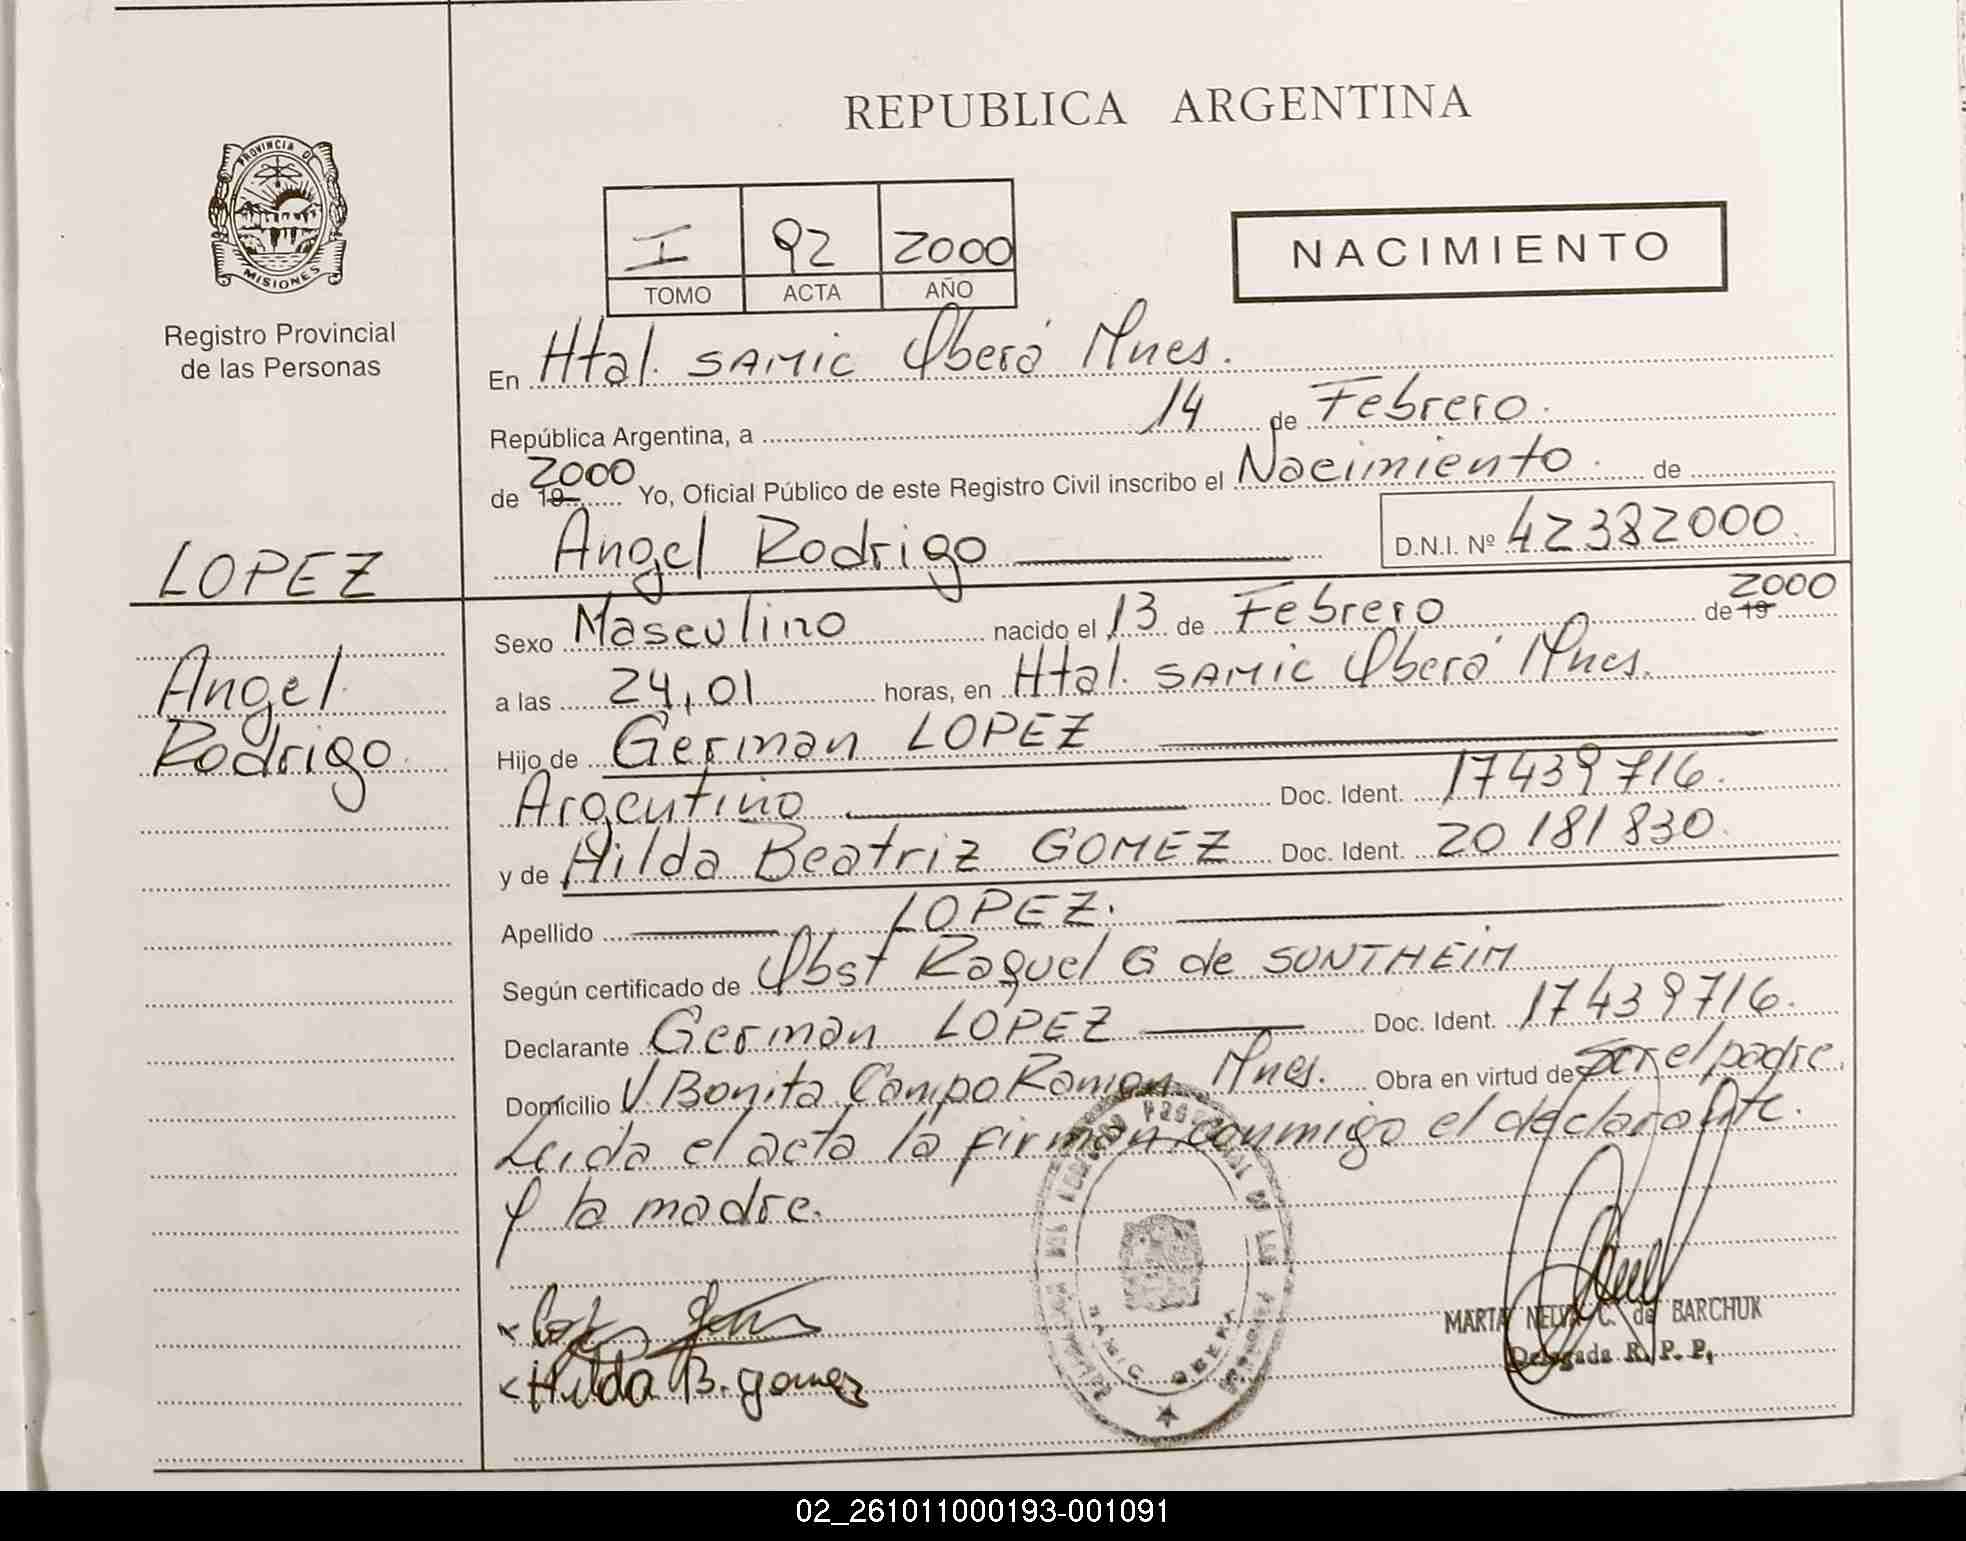 REPUBLICA ARGENTINA
PROVINCIA DE
MISIONES
Registro Provincial
de las Personas
I 92 2000
TOMO ACTA AÑO
NACIMIENTO
En Htal. SAMIC Oberá Mnes.
República Argentina, a 14 de Febrero.
de 19 2000 Yo, Oficial Público de este Registro Civil inscribo el Nacimiento. de
Angel Rodrigo D.N.I. Nº 42382000.
LOPEZ
Angel
Rodrigo.
Sexo Masculino nacido el 13 de Febrero de 19 2000
a las 24,01 horas, en Htal. SAMIC Oberá Mnes.
Hijo de German LOPEZ
Argentino Doc. Ident. 17439716.
y de Hilda Beatriz GOMEZ Doc. Ident. 20181830.
Apellido LOPEZ.
Según certificado de Obst Raquel G de SUNTHEIM
Declarante German LOPEZ Doc. Ident. 17439716.
Domicilio V. Bonita Campo Ramon Mnes. Obra en virtud de ser el padre.
Leida el acta la firman conmigo el declarante.
y la madre.
Hilda B. gomez
MARTA NELVA C. de BARCHUK
Delegada R. P. P.
SAMIC OBERA
02_261011000193-001091